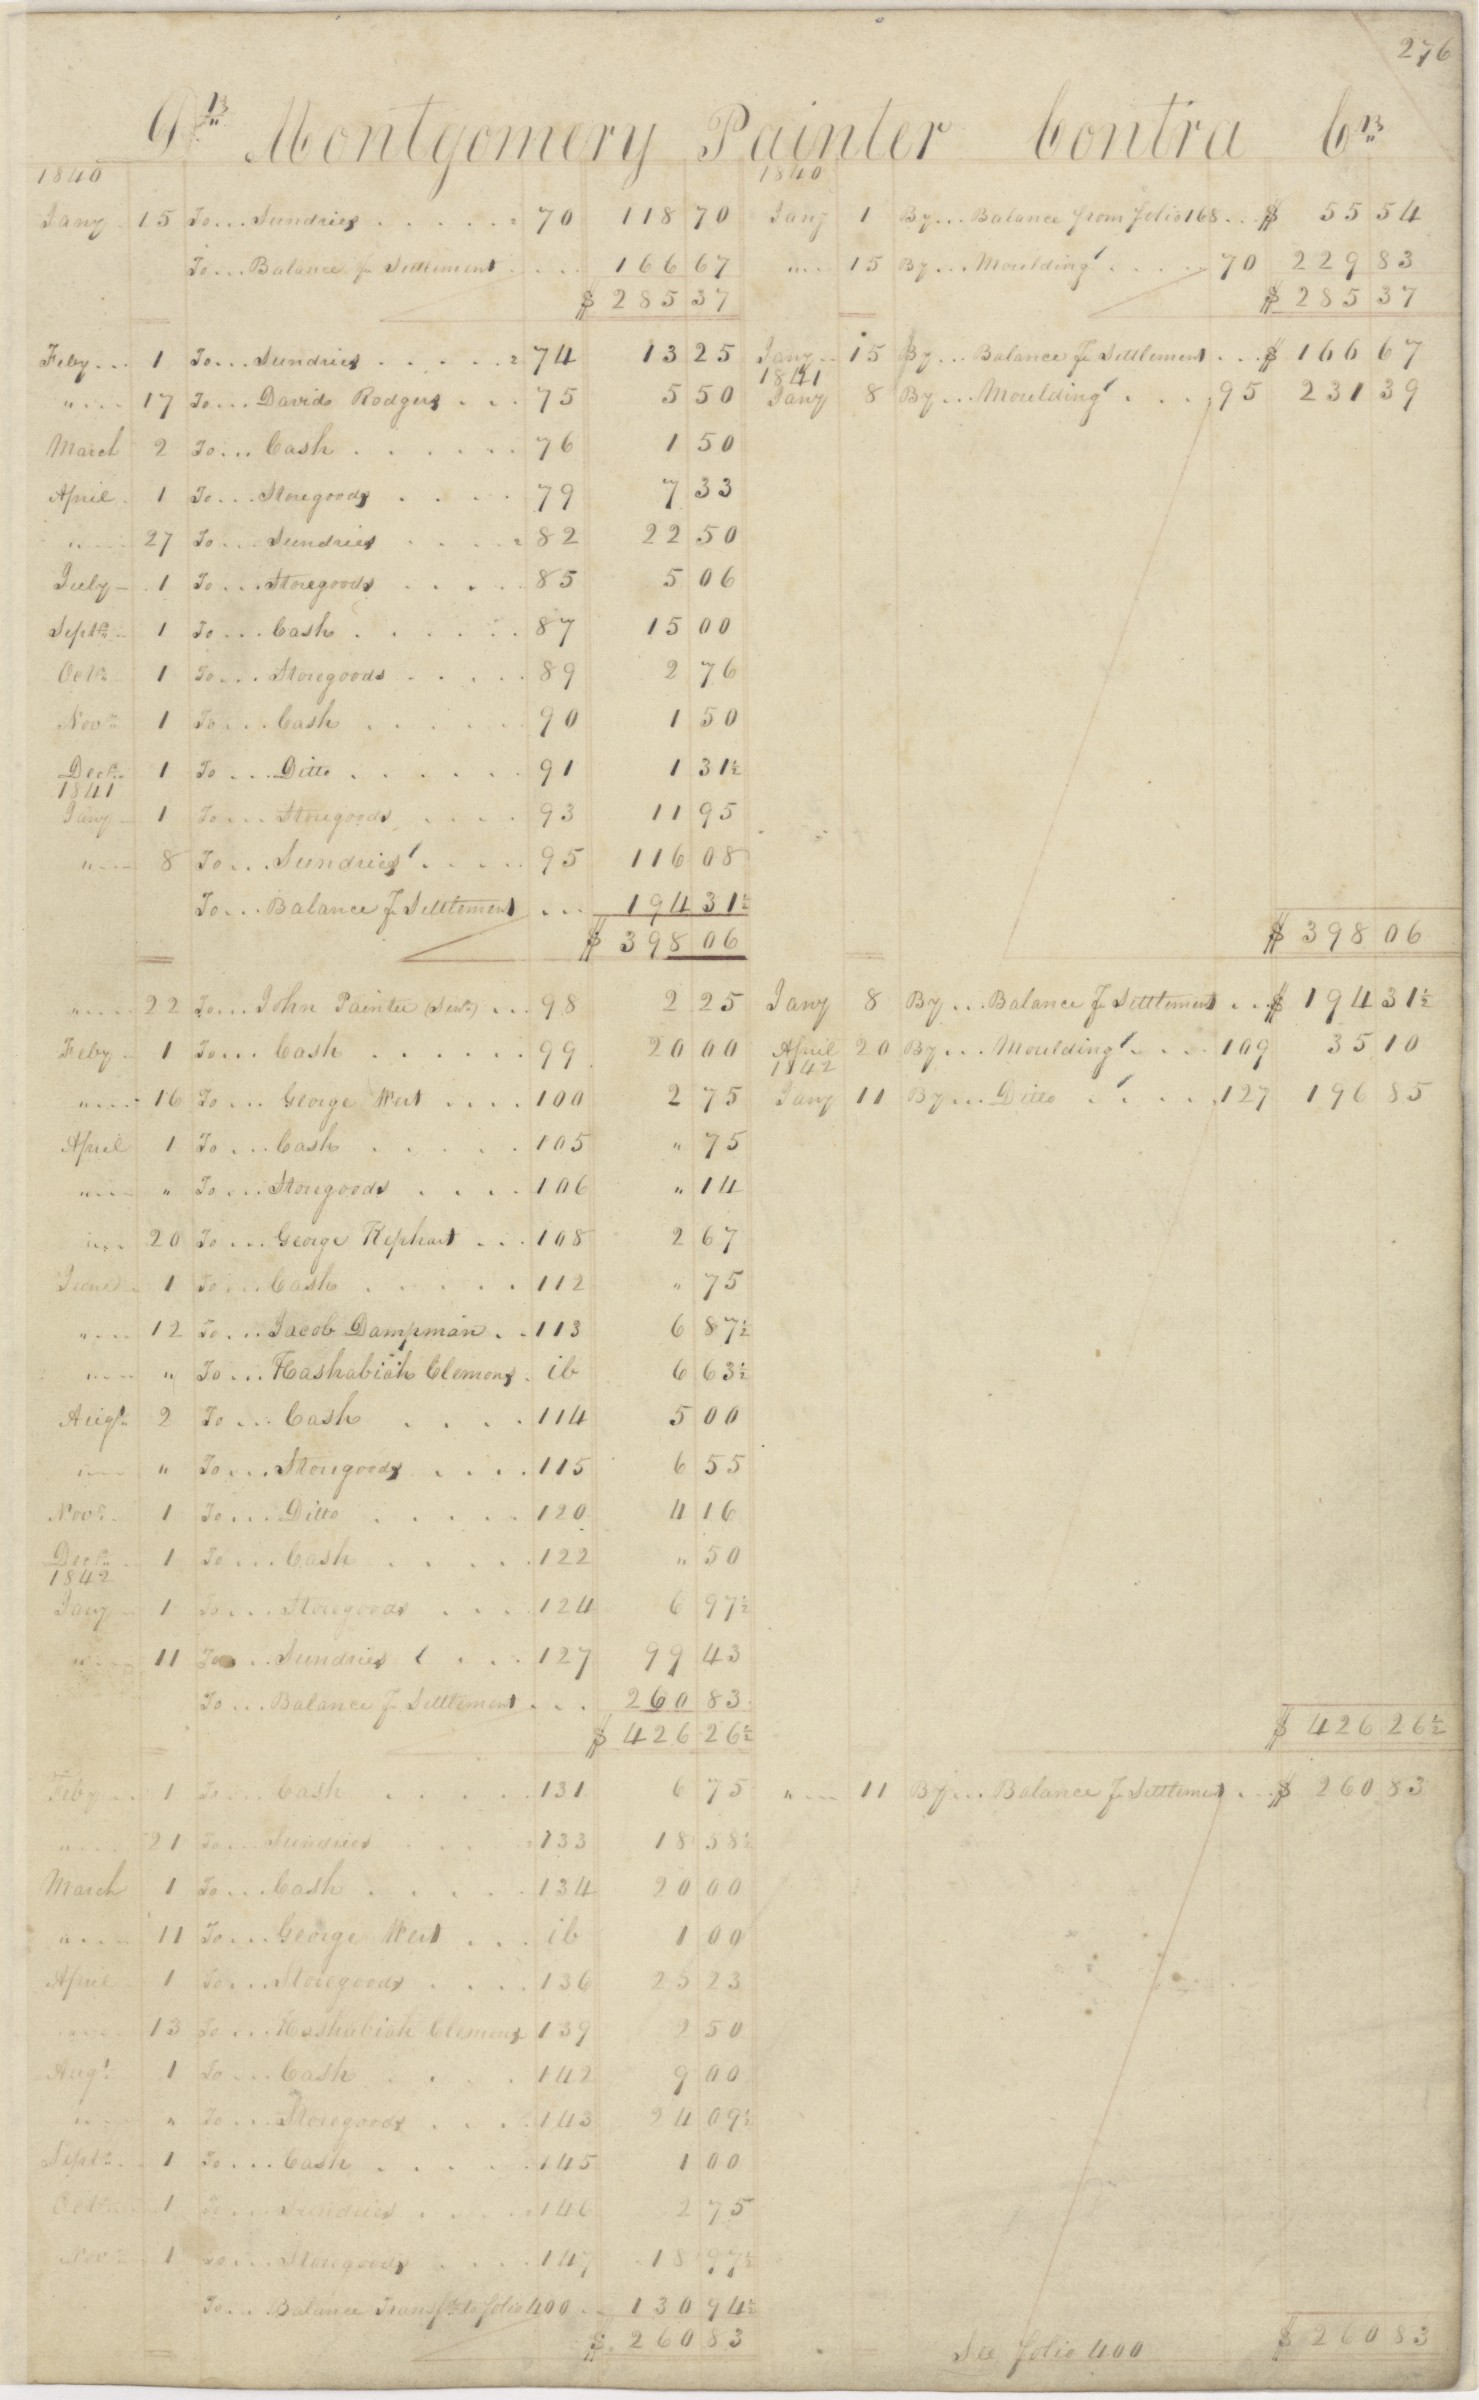 276
Dr. Montgomery Painter Contra Cr.
1840 1840
Jany 15 To... Sundries 70 118 70 Jany 1 By... Balance from folio 168 $ 55 54
To... Balance pr Settlement 166 67 " 15 By... Moulding 70 229 83
$ 285 37 $ 285 37
Feby 1 To... Sundries 74 13 25 Jany 15 By... Balance pr Settlement $ 166 67
1841
" 17 To... Davids Rodgers 75 5 50 Jany 8 By... Moulding 95 231 39
March 2 To... Cash 76 1 50
April 1 To... Storegoods 79 7 33
" 27 To... Sundries 82 22 50
July 1 To... Storegoods 85 5 06
Septr. 1 To... Cash 87 15 00
Octr. 1 To... Storegoods 89 2 76
Novr. 1 To... Cash 90 1 50
Decr. 1 To... Ditto 91 1 31½
1841
Jany 1 To... Storegoods 93 11 95
" 8 To... Sundries 95 116 08
To... Balance pr Settlement 194 31½
$ 398 06 $ 398 06
" 22 To... John Painter (Senr.) 98 2 25 Jany 8 By... Balance pr Settlement $ 194 31½
Feby 1 To... Cash 99 20 00 April 20 By... Moulding 109 35 10
1842
" 16 To... George Wert 100 2 75 Jany 11 By... Ditto 127 196 85
April 1 To... Cash 105 " 75
" " To... Storegoods 106 " 14
" 20 To... George Kephart 108 2 67
June 1 To... Cash 112 " 75
" 12 To... Jacob Dampman 113 6 87½
" " To... Hashabiah Clemons ib 6 63½
Augt. 2 To... Cash 114 5 00
" " To... Storegoods 115 6 55
Novr. 1 To... Ditto 120 4 16
Decr. 1 To... Cash 122 " 50
1842
Jany 1 To... Storegoods 124 6 97½
" 11 To... Sundries 127 99 43
To... Balance pr Settlement 260 83
$ 426 26½ $ 426 26½
Feby 1 To... Cash 131 6 75 " 11 By... Balance pr Settlement $ 260 83
" 21 To... Sundries 133 18 58½
March 1 To... Cash 134 20 00
" 11 To... George Wert ib 1 00
April 1 To... Storegoods 136 25 23
" 13 To... Hashabiah Clemons 139 2 50
Augt. 1 To... Cash 142 9 00
" " To... Storegoods 143 24 09½
Septr. 1 To... Cash 145 1 00
Octr. 1 To... Sundries 146 2 75
Novr. 1 To... Storegoods 147 18 97½
To... Balance Transfd. to folio 400 130 94½
$ 260 83 See folio 400 $ 260 83